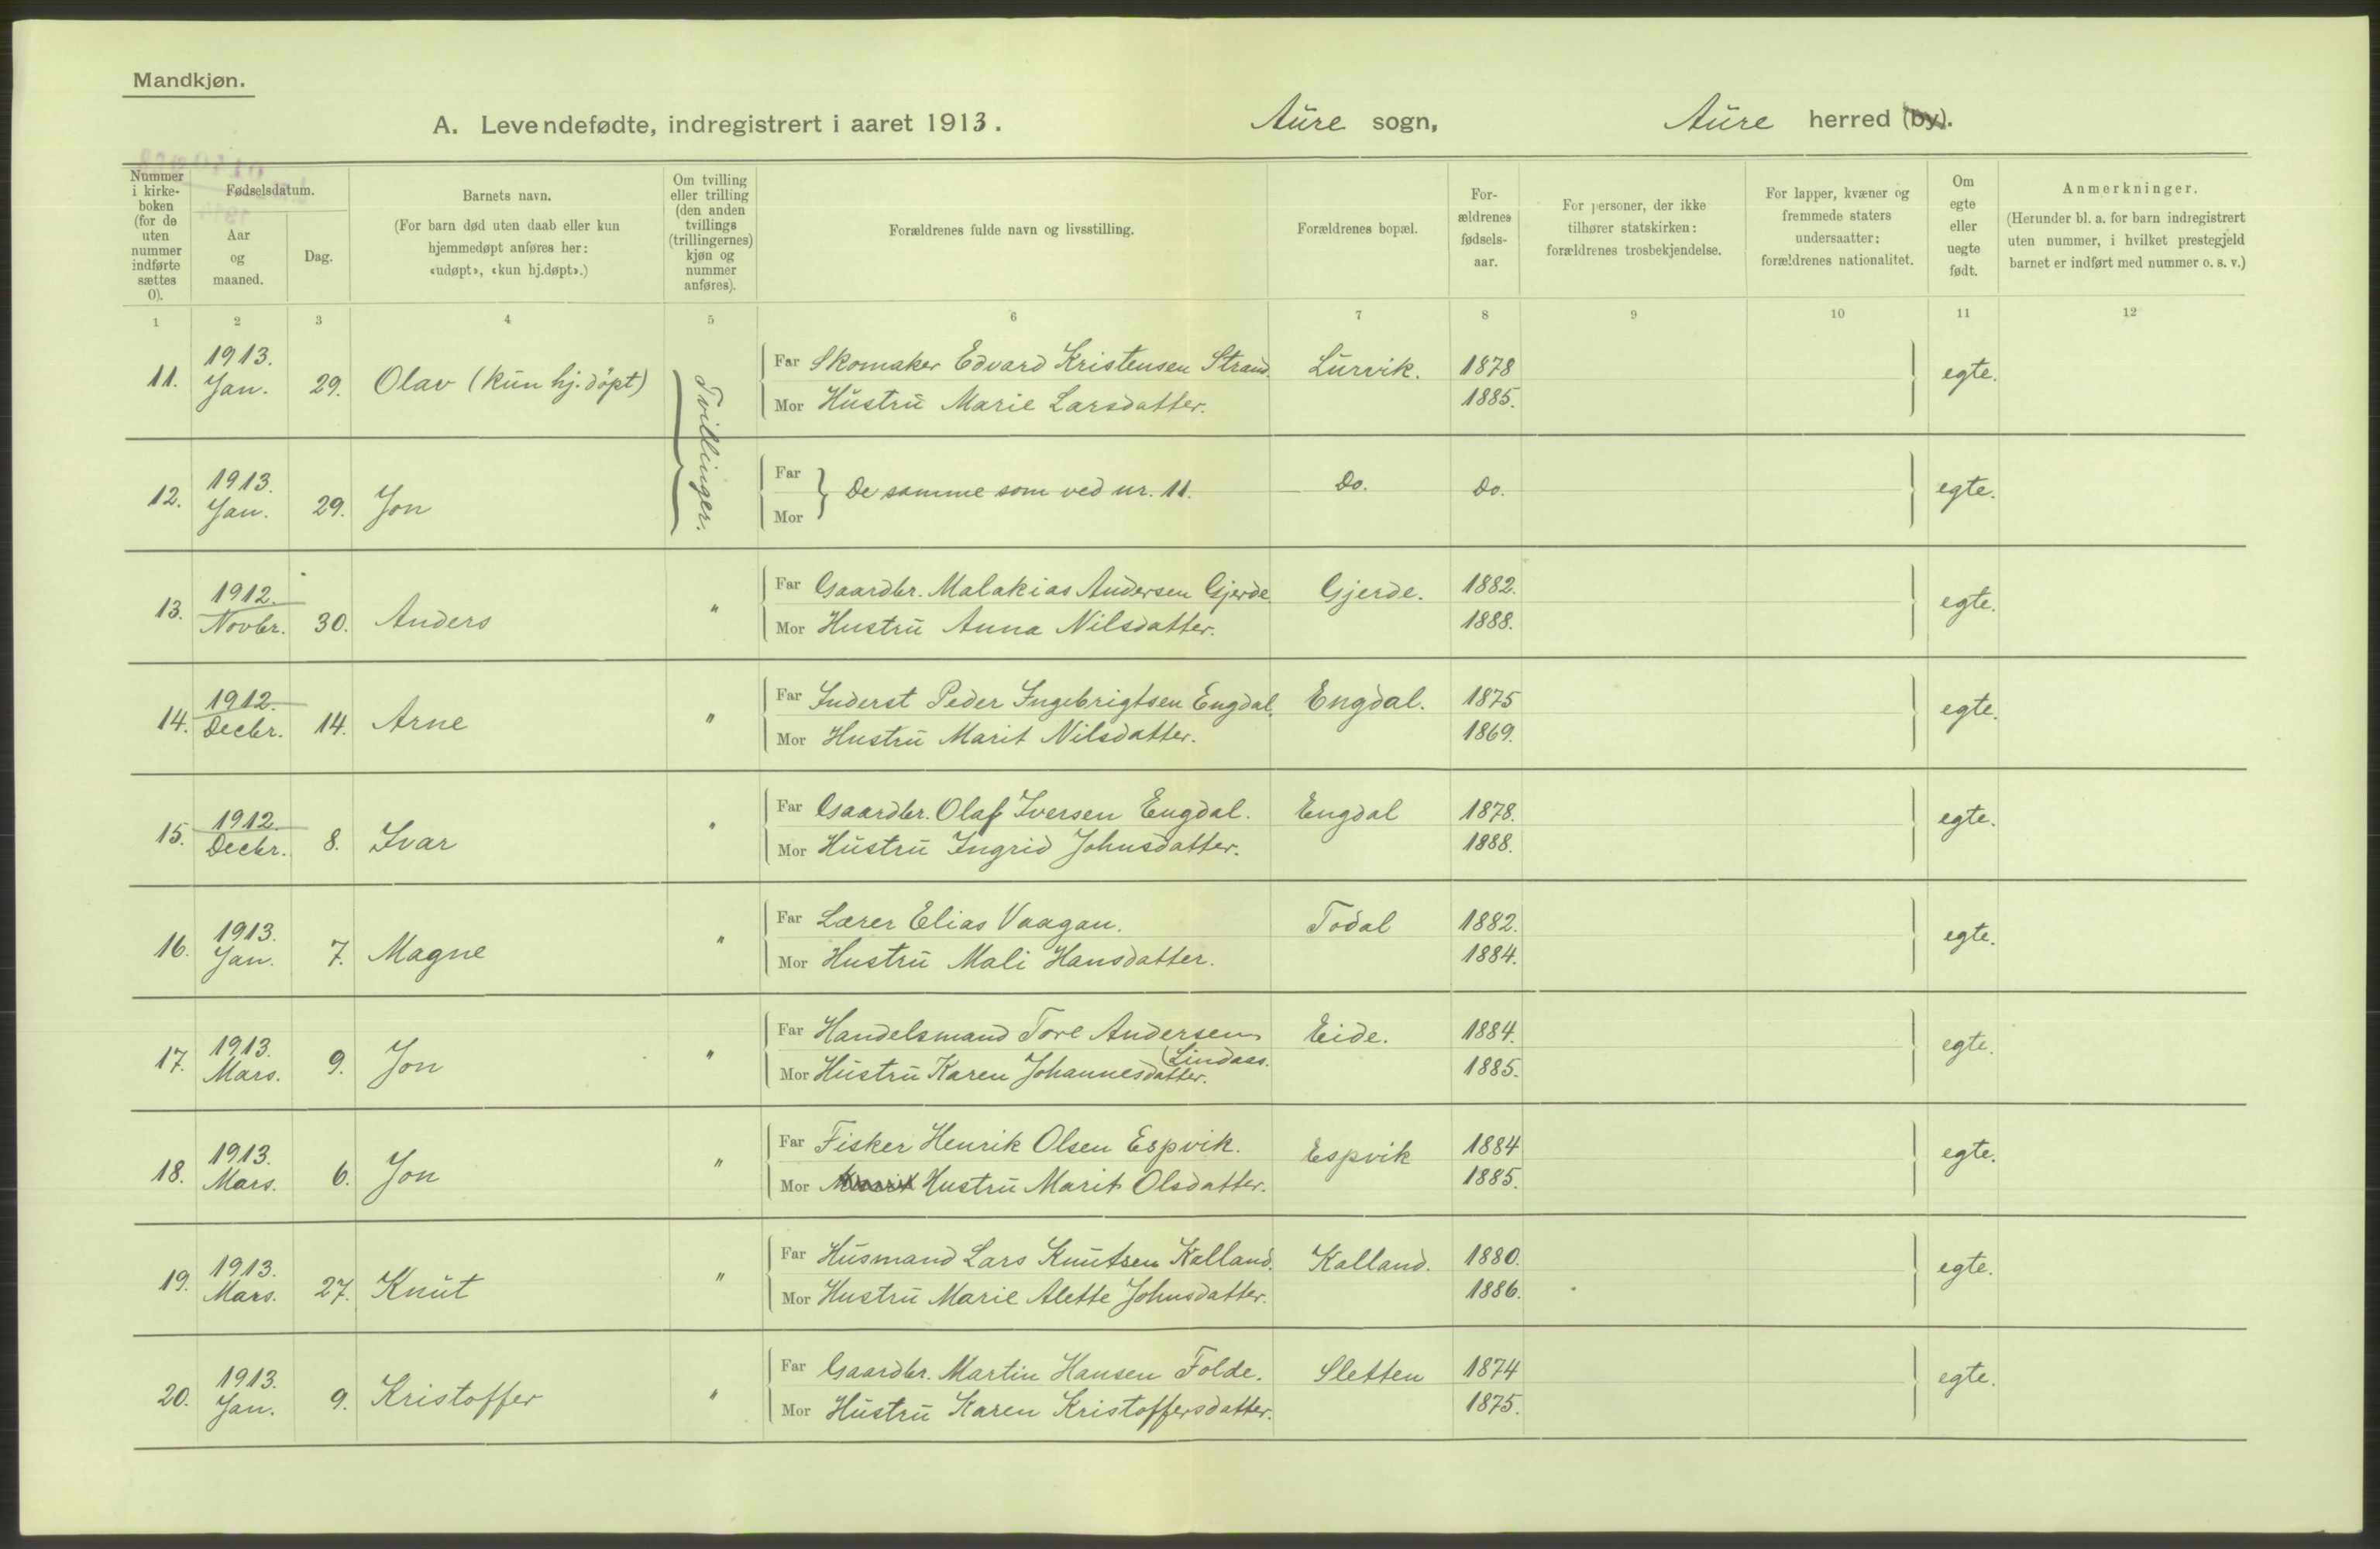 Mandkjøn.
A. Levendefødte, indregistrert i aaret 1913. Aure sogn, Aure herred (by).
Nummer i kirke-boken (for de uten nummer indførte sættes 0).
Fødselsdatum.
Aar og maaned.
Dag.
Barnets navn.
(For barn død uten daab eller kun hjemmedøpt anføres her: «udøpt», «kun hj.døpt».)
Om tvilling eller trilling (den anden tvillings (trillingernes) kjøn og nummer anføres).
Forældrenes fulde navn og livsstilling.
Forældrenes bopæl.
For-ældrenes fødsels-aar.
For personer, der ikke tilhører statskirken: forældrenes trosbekjendelse.
For lapper, kvæner og fremmede staters undersaatter: forældrenes nationalitet.
Om egte eller uegte født.
Anmerkninger.
(Herunder bl. a. for barn indregistrert uten nummer, i hvilket prestegjeld barnet er indført med nummer o. s. v.)
1 2 3 4 5 6 7 8 9 10 11 12
11. 1913. Jan. 29. Olav (kun hj. døpt) Tvillinger. Far Skomaker Edvard Kristensen Strand. Lurvik. 1878 egte.
Mor Hustru Marie Larsdatter. 1885.
12. 1913. Jan. 29. Jon Far Mor De samme som ved nr. 11. Do. Do. egte.
13. 1912. Novbr. 30. Anders " Far Gaardbr. Malakias Andersen Gjerde. Gjerde. 1882. egte.
Mor Hustru Anna Nilsdatter. 1888.
14. 1912. Decbr. 14. Arne " Far Inderst Peder Ingebrigtsen Engdal. Engdal. 1875 egte.
Mor Hustru Marit Nilsdatter. 1869.
15. 1912. Decbr. 8. Ivar " Far Gaardbr. Olaf Iversen Engdal. Engdal 1878. egte.
Mor Hustru Ingrid Johnsdatter. 1888.
16. 1913. Jan. 7. Magne " Far Lærer Elias Vaagan. Todal 1882. egte.
Mor Hustru Mali Hansdatter. 1884.
17. 1913. Mars. 9. Jon " Far Handelsmand Tore Andersen (Lindaas. Eide. 1884. egte.
Mor Hustru Karen Johannesdatter. 1885.
18. 1913. Mars. 6. Jon " Far Fisker Henrik Olsen Espvik. Espvik 1884 egte.
Mor Hustru Marit Olsdatter. 1885.
19. 1913. Mars. 27. Knut " Far Husmand Lars Knutsen Kalland. Kalland. 1880. egte.
Mor Hustru Marie Alette Johnsdatter. 1886.
20. 1913. Jan. 9. Kristoffer " Far Gaardbr. Martin Hansen Folde. Sletten 1874 egte.
Mor Hustru Karen Kristoffersdatter. 1875.